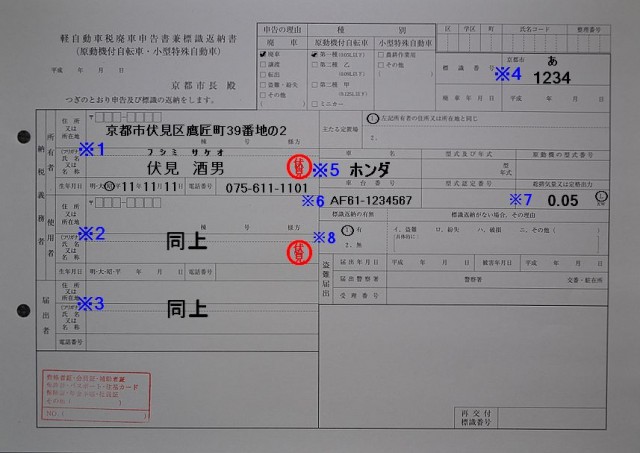 軽自動車税廃車申告書兼標識返納書
(原動機付自転車・小型特殊自動車)
平成　年　月　日
京都市長 殿
つぎのとおり申告及び標識の返納をします。
申告の理由
種　別
廃　車
原動機付自転車
小型特殊自動車
廃車
譲渡
転出
盗難・紛失
その他
第一種
第二種　乙
第二種　甲
ミニカー
農耕作業用
その他
区
学区
町
氏名コード
整理番号
標識番号
※4
京都市
あ
1234
廃車年月日
平成　年　月　日
納税義務者
所有者
住所
又は
所在地
〒
京都市伏見区鷹匠町39番地の2
棟　号　様方
※1
(フリガナ)
氏名
又は
名称
フシミ サケオ
伏見 酒男
伏見
生年月日
明・大・昭・平 11年11月11日
電話番号
075-611-1101
使用者
住所
又は
所在地
〒
棟　号　様方
※2
(フリガナ)
氏名
又は
名称
同上
伏見
※8
生年月日
明・大・昭・平　年　月　日
電話番号
届出者
住所
又は
所在地
※3
(フリガナ)
氏名
又は
名称
同上
電話番号
主たる定置場
1. 左記所有者の住所又は所在地と同じ
2.
※5
車名
ホンダ
型式及び年式
型
年式
原動機の型式番号
※6
車台番号
AF61-1234567
型式認定番号
※7
総排気量又は定格出力
0.05
標識返納の有無
1. 有
2. 無
標識返納がない場合、その理由
イ. 盗難
ロ. 紛失
ハ. 破損
ニ. その他(　)
盗難届出
届出年月日
平成　年　月　日
被害年月日
平成　年　月　日
届出警察署
警察署
交番・駐在所
受理番号
再交付
標識番号
NO.(　)